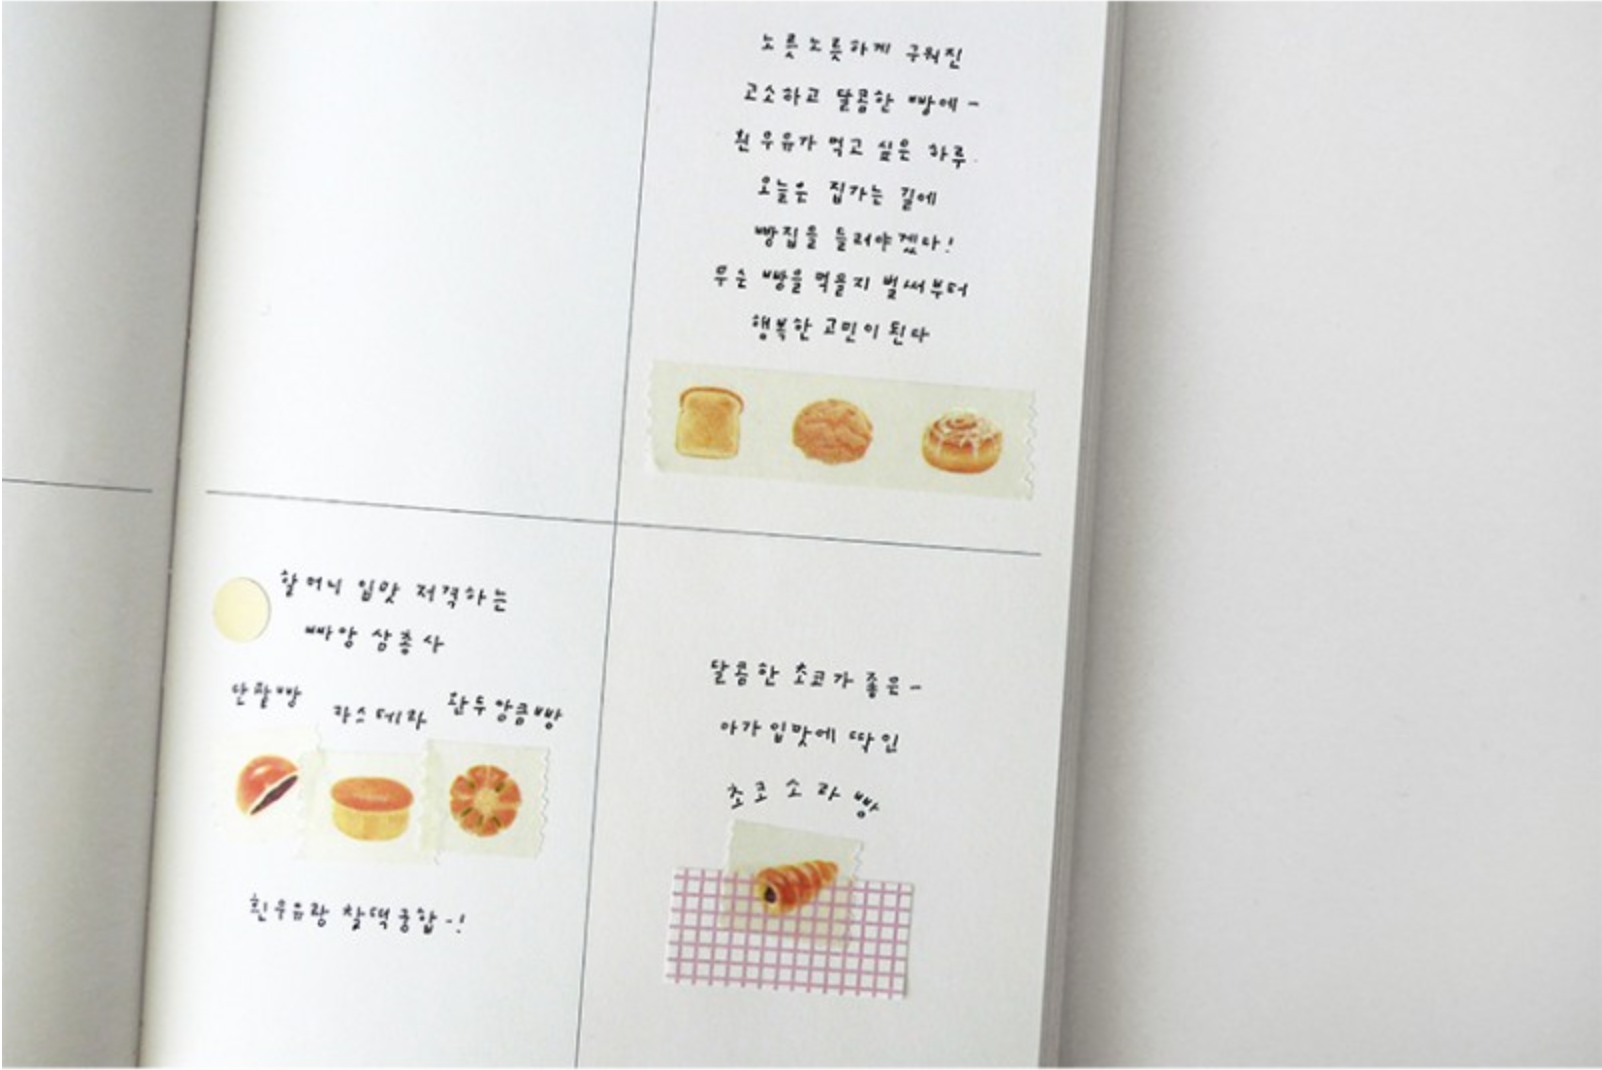 노릇노릇하게 구워진
고소하고 달콤한 빵에-
흰 우유가 먹고 싶은 하루.
오늘은 집가는 길에
빵집을 들러야겠다!
무슨 빵을 먹을지 벌써부터
행복한 고민이 된다
할머니 입맛 저격하는
빠앙 삼총사
단팥빵
카스테라
완두앙금빵
흰우유랑 찰떡궁합-!
달콤한 초코가 좋은-
아가입맛에 딱인
초코 소라빵